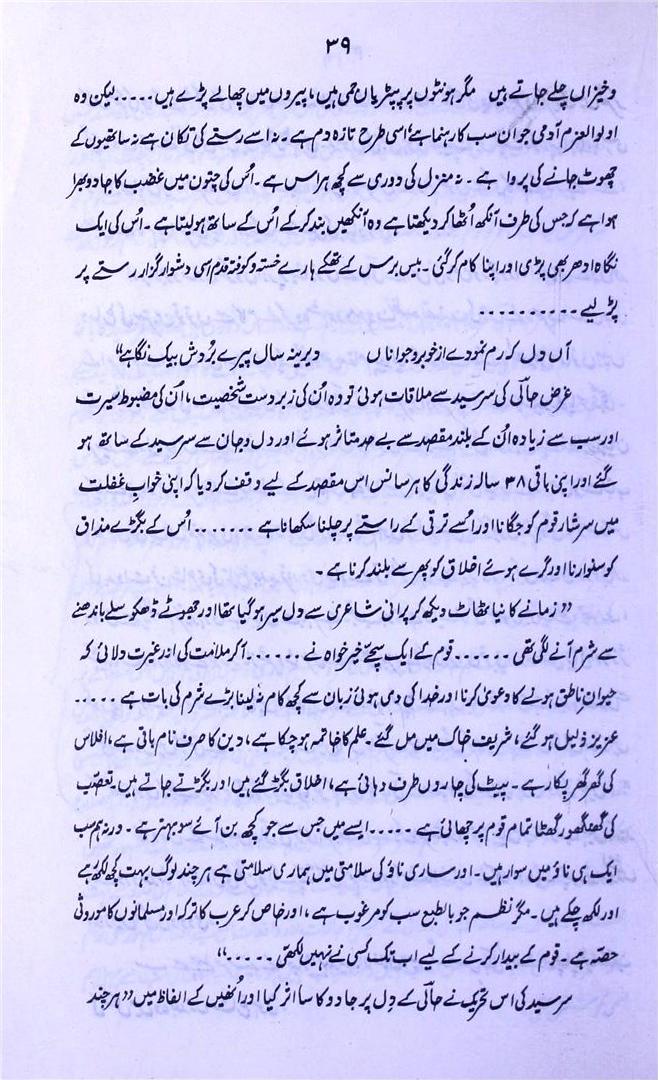 ۳۹
وخیزاں چلے جاتے ہیں مگر ہونٹوں پر پپڑیاں جمی ہیں، پیروں میں چھالے پڑے ہیں ..... لیکن وہ
اولوالعزم آدمی جو ان سب کا رہنما ہے اسی طرح تازہ دم ہے۔ نہ اسے رستے کی تکان ہے نہ ساتھیوں کے
چھوٹ جانے کی پروا ہے۔ نہ منزل کی دوری سے کچھ ہراس ہے۔ اُس کی چتون میں غضب کا جادو بھرا
ہوا ہے کہ جس کی طرف آنکھ اُٹھا کر دیکھتا ہے وہ آنکھیں بند کر کے اُس کے ساتھ ہو لیتا ہے۔ اُس کی ایک
نگاہ ادھر بھی پڑی اور اپنا کام کر گئی۔ بیس برس کے تھکے ہارے خستہ و کوفتہ قدم اسی دشوار گزار رستے پر
پڑ لیے ..........
آں دل کہ رم نمودے از خوبرو جواناں دیرینہ سال پیرے بُردش بیک نگاہے“
غرض حالؔی کی سرسید سے ملاقات ہوئی تو وہ اُن کی زبردست شخصیت، اُن کی مضبوط سیرت
اور سب سے زیادہ اُن کے بلند مقصد سے بے حد متاثر ہوئے اور دل و جان سے سرسید کے ساتھ ہو
گئے اور اپنی باقی ۳۸ سالہ زندگی کا ہر سانس اس مقصد کے لیے وقف کر دیا کہ اپنی خوابِ غفلت
میں سرشار قوم کو جگانا اور اُسے ترقی کے راستے پر چلنا سکھانا ہے ....... اُس کے بگڑے مذاق
کو سنوارنا اور گرے ہوئے اخلاق کو پھر سے بلند کرنا ہے۔
”زمانے کا نیا ٹھاٹ دیکھ کر پرانی شاعری سے دل سیر ہو گیا تھا اور جھوٹے ڈھکوسلے باندھنے
سے شرم آنے لگی تھی ....... قوم کے ایک سچّے خیر خواہ نے ...... آکر ملامت کی اور غیرت دلائی کہ
حیوانِ ناطق ہونے کا دعویٰ کرنا اور خدا کی دی ہوئی زبان سے کچھ کام نہ لینا بڑے شرم کی بات ہے .....
عزیز ذلیل ہو گئے، شریف خاک میں مل گئے۔ علم کا خاتمہ ہو چکا ہے، دین کا صرف نام باقی ہے، افلاس
کی گھر گھر پکار ہے۔ پیٹ کی چاروں طرف دہائی ہے، اخلاق بگڑ گئے ہیں اور بگڑتے جاتے ہیں۔ تعصّب
کی گھنگھور گھٹا تمام قوم پر چھائی ہے ..... ایسے میں جس سے جو کچھ بن آئے سو بہتر ہے۔ ورنہ ہم سب
ایک ہی ناؤ میں سوار ہیں۔ اور ساری ناؤ کی سلامتی میں ہماری سلامتی ہے ہر چند لوگ بہت کچھ لکھ رہے
اور لکھ چکے ہیں۔ مگر نظم جو بالطبع سب کو مرغوب ہے، اور خاص کر عرب کا ترکہ اور مسلمانوں کا موروثی
حصّہ ہے۔ قوم کے بیدار کرنے کے لیے اب تک کسی نے نہیں لکھی .....“
سرسید کی اس تحریک نے حالؔی کے دل پر جادو کا سا اثر کیا اور اُنھیں کے الفاظ میں ”ہر چند